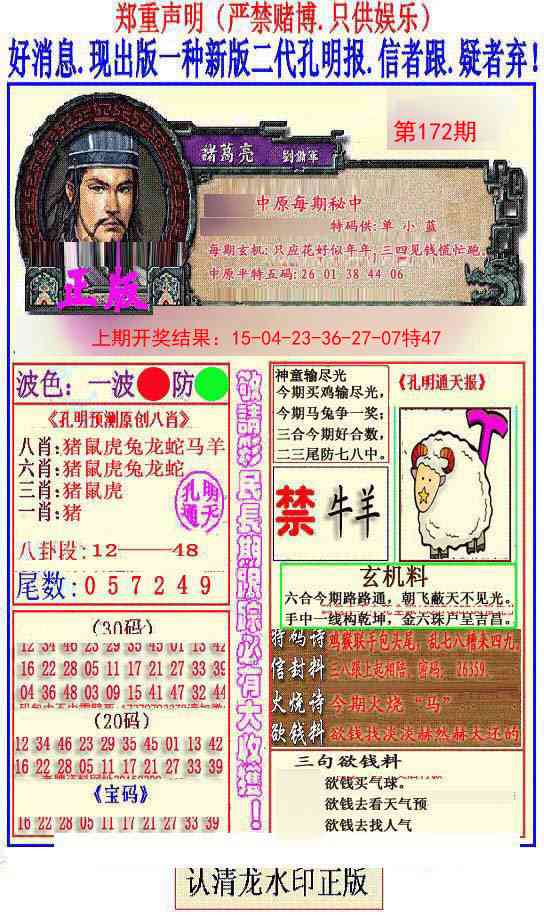 郑重声明（严禁赌博.只供娱乐）
好消息.现出版一种新版二代孔明报.信者跟.疑者弃!
第172期
諸葛亮 劉備軍
中原每期秘中
特码供:单 小 蓝
每期玄机:只应花好似年年,三四见钱慌忙跑.
中原平特五码:26 01 38 44 06
正版
上期开奖结果：15-04-23-36-27-07特47
波色：一波 防
《孔明预测原创八肖》
八肖:猪鼠虎兔龙蛇马羊
六肖:猪鼠虎兔龙蛇
三肖:猪鼠虎
一肖:猪
孔明通天
八卦段:12——48
尾数:057249
(30码)
12 34 46 23 29 35 45 01 13 42
16 22 28 05 11 17 21 27 33 39
04 36 48 03 09 15 41 47 32 44
(20码)
12 34 46 23 29 35 45 01 13 42
16 22 28 05 11 17 21 27 33 39
《宝码》
16 22 28 05 11 17 21 27 33 39
敬請彩民長期跟踪必有大收獲！
神童输尽光
今期买鸡输尽光，
今期马兔争一奖；
三合今期好合数，
二三尾防七八中。
《孔明通天报》
禁 牛羊
玄机料
六合今期路路通，朝飞蔽天不见光。
手中一线构乾坤，金六珠户呈吉昌。
特码诗 鸡猴联手包头尾，乱七八糟来四九
信封料 三八跟上起相陪，密码：26359.
火烧诗 今期火烧“马”
欲钱料 欲钱找淡淡赫然赫大还的
三句欲钱料
欲钱买气球。
欲钱去看天气预
欲钱去找人气
认清龙水印正版